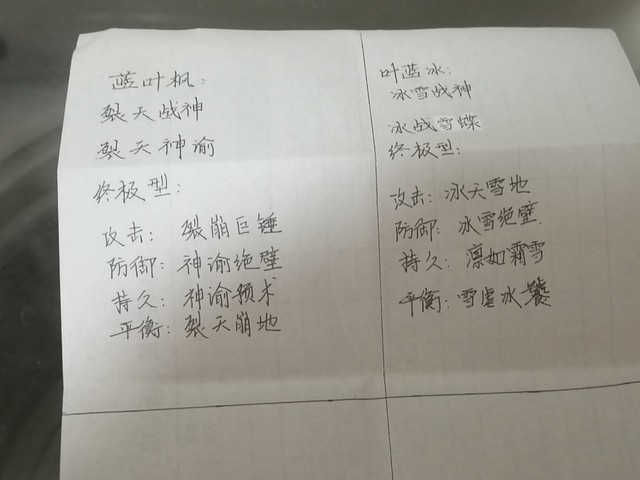 蓝叶枫:
裂天战神
裂天神谕
终极型:
攻击: 裂崩巨锤
防御: 神谕绝壁
持久: 神谕预术
平衡: 裂天崩地
叶蓝冰:
冰雪战神
冰战雪蝶
终极型:
攻击: 冰天雪地
防御: 冰雪绝壁
持久: 凛如霜雪
平衡: 雪虐冰饕